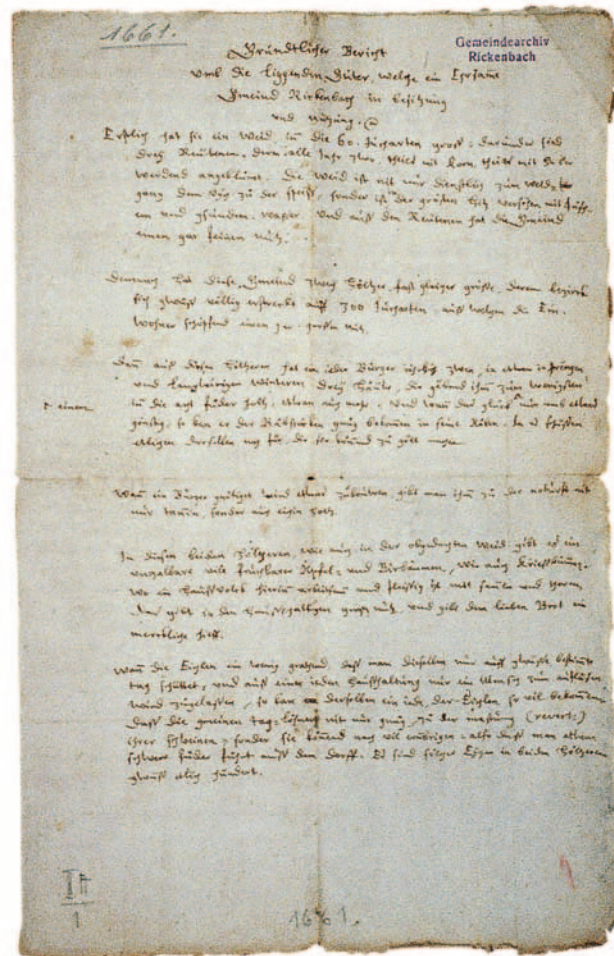 1661.
Gemeindearchiv
Rickenbach
Gründtlicher Bericht
umb die Liggenden Güter, welche ein Ehrsame
Gmeind Rickenbach in besitzung
und nutzung.
Erstlich hat sie ein Weid, in die 60. Jucharten groß, darunder sind
drey Reutenen, deren alle Jahr zwo, theils mit Korn, theils mit Haber
werdend angeblümt. Die Weid ist nit nur dienstlich zum
gang dem Vych zu der speiß, sonder ist der größten hitz versehen mit
em und gsundem waßer. Und auß den Reutenen hat die Gmeind
einen gar feinen nutz.
Demnach hat diese Gmeind zwey Höltzer, fast gleicher größe, deren bezirk
sich gwüß völlig erstreckt auff 300 Jucharten, auß welchen die Ein-
wohner schöpfend einen gar großen nutz.
Dann auß disen Höltzeren hat ein jeder Burger zwen, in etwan strengen
und langwirigen winteren drey Häuw, die gäbend ihm zum wenigsten
in die acht fuder holtz, etwan auch mehr. Und wann das glück nun umb etwas
einem
günstig, so kan er der Räbstecken gnug bekommen in seine Räben. In
etlichen derselben noch für, die sie könnd zu gält machen.
Wann ein Burger genötiget wird etwas zubauwen, gibt man ihm zu der notturft nit
nur tannin, sonder auch eichin holtz.
In disen beiden Höltzeren, wie auch in der obgedachten Weid gibt es ein
unzalbare vile fruchtbarer Äpfel- und Birbäumen, wie auch Kriesibäum,
wo ein Haußvolck hierin arbeitsam und fleissig ist mit samlen und
das gibt in den Haußhaltungen große nutz, und gibt dem lieben Brot ein
merckliche hilff.
Wann die Eichlen ein wenig gratend, daß man dieselben nur auff gwüsse bestimte
tag schüttet, und auß einer jeden Haußhaltung nur ein Mensch zum aufläsen
wird zugelassen, so kan derselben ein jeder der Eichlen so vil bekommen,
daß die gmeinen Tag-löhner nit nur gnug zu der mastung (revert:)
ihrer schweinen, sonder sie könnend noch vil erübrigen, also daß man etwan
schwere fuder führt auß dem dorff. Es sind solcher Eychen in beiden Höltzeren
gwüß etlich hundert.
II A
1
1661.